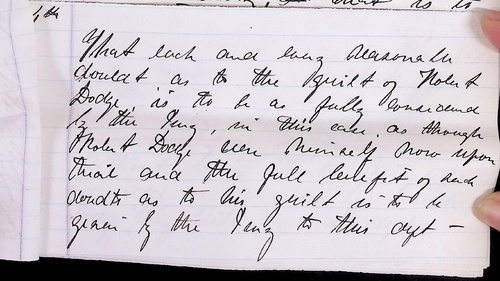 4th
That each and every reasonable
doubt as to the guilt of Robert
Dodge is to be as fully considered
by the Jury, in this case, as though
Robert Dodge were himself now upon
trial and the full benefit of such
doubts as to his guilt is to be
given by the Jury to this deft —